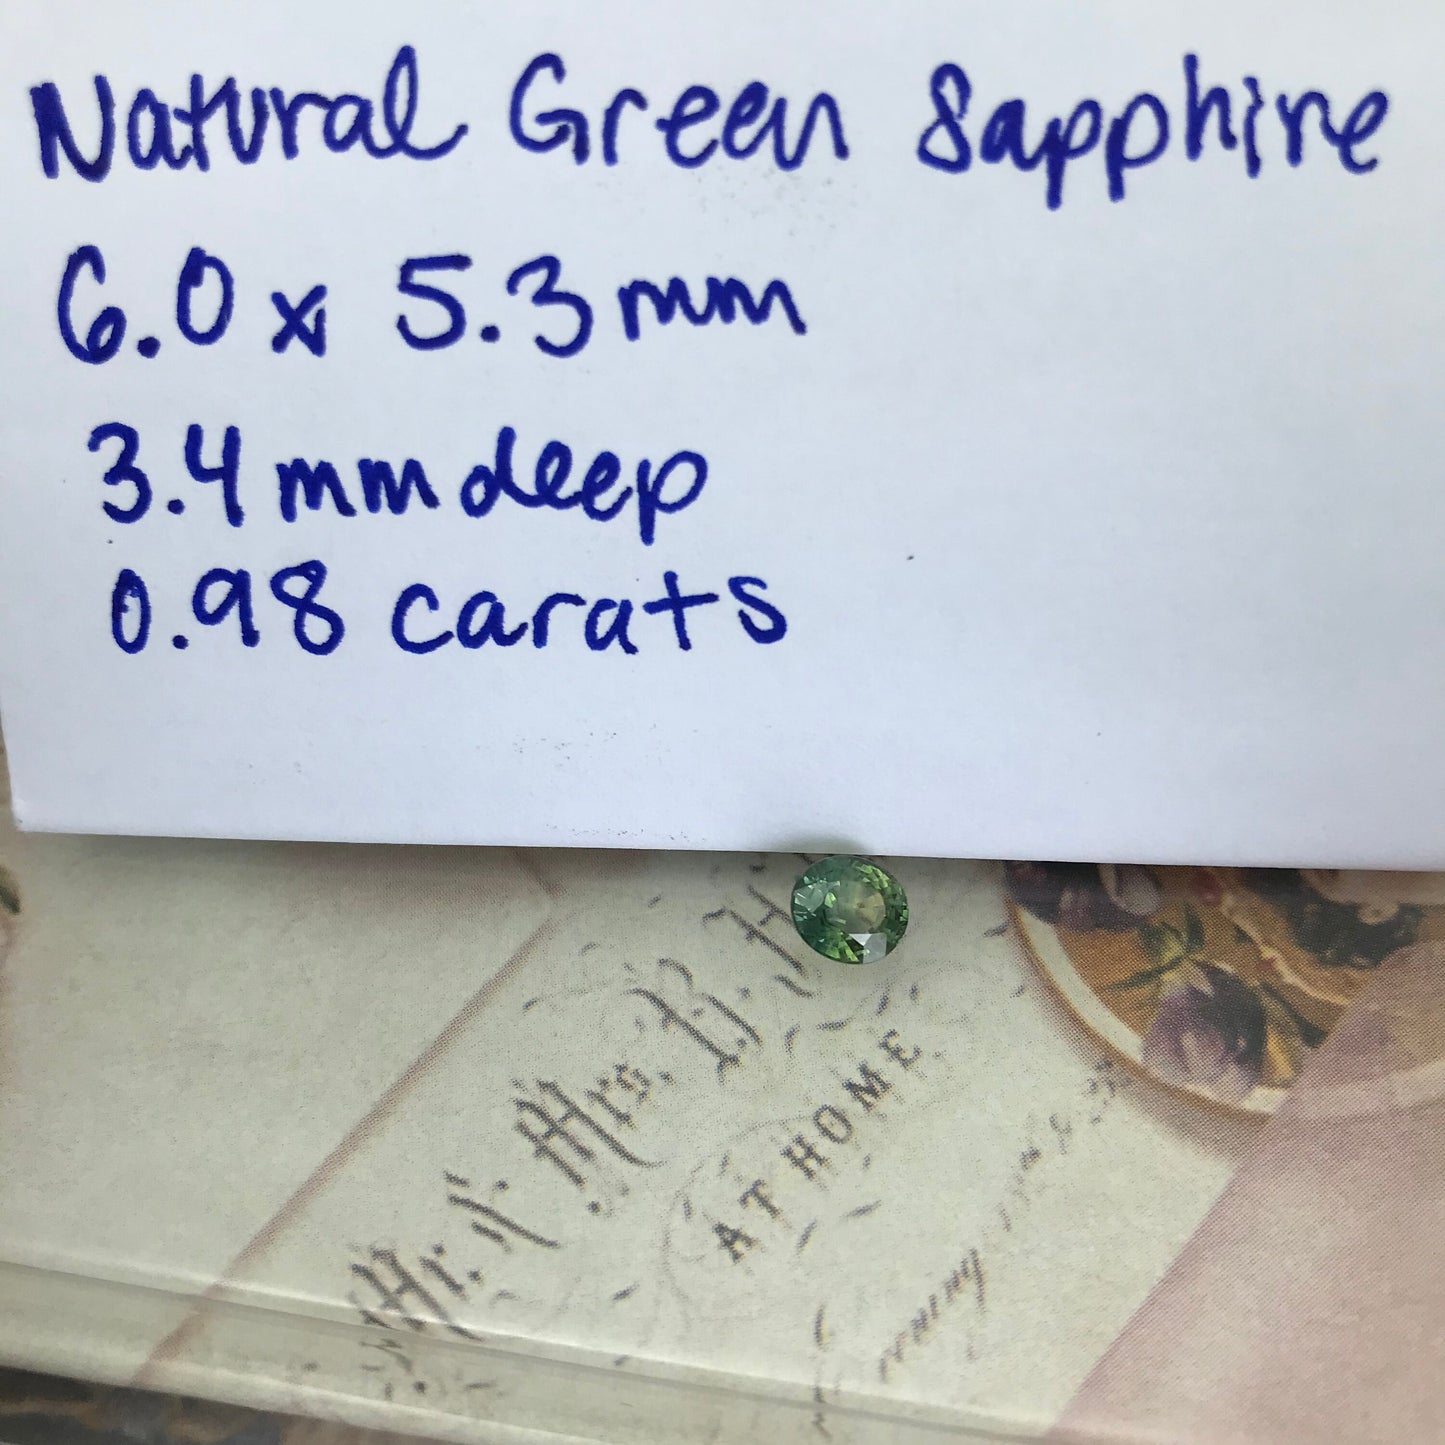 Natural Green Sapphire
6.0 x 5.3 mm
3.4 mm deep
0.98 carats
Mrs. B. H
AT HOME